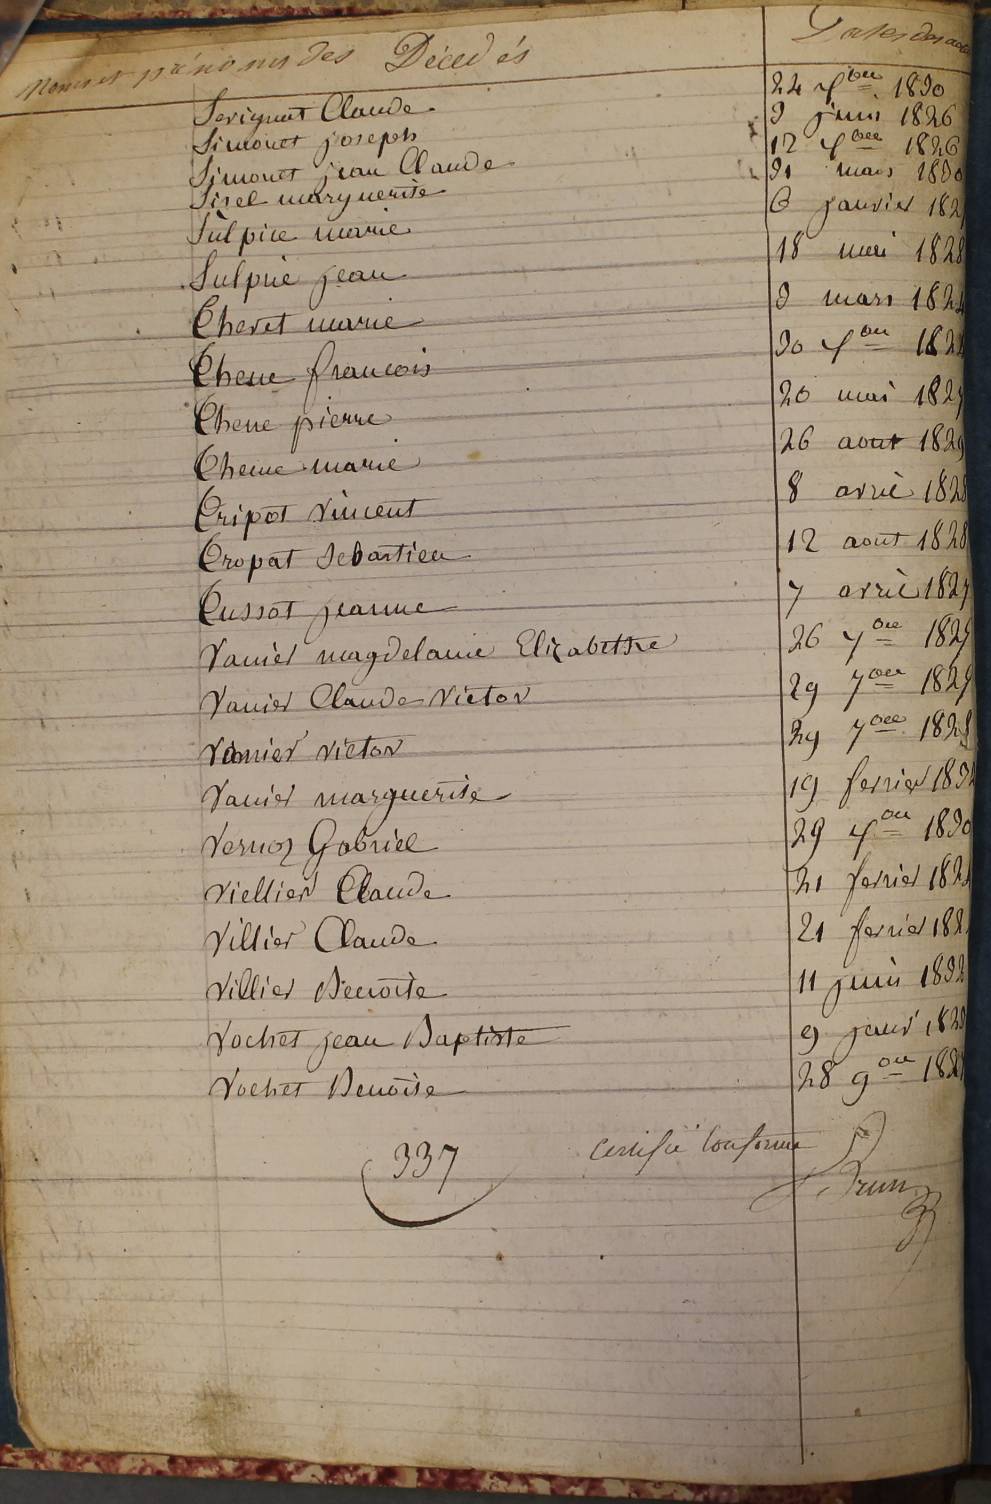 Noms et prénoms des Décédés Dates des actes
Serignat Claude 24 xbre 1830
Simonet joseph 3 juin 1826
Simonet jean Claude 12 xbre 1826
Sisel marguerite 31 mars 1830
Sulpice marie 6 janvier 182
Sulpice jean 18 mai 1828
Thevet marie 3 mars 1824
Thene francois 30 xbre 182
Thene pierre 20 mai 1827
Thene marie 26 aout 1829
Tripot vincent 8 avril 1828
Tropat Sebastien 12 aout 1828
Tussot jeanne 7 avril 1827
Vanier magdelaine Elizabethe 26 7bre 1827
Vanier Claude Victor 29 7bre 1827
Vanier victor 29 7bre 1828
Vanier marguerite 19 fevrier 183
Vernoz Gabriel 29 xbre 1830
Viellier Claude 21 fevrier 182
Villier Claude 21 fevrier 182
Villier Benoite 11 juin 1832
Vochet jean Baptiste 9 janvr 1829
Vochet Benoite 28 9bre 182
337 certifié Conforme
Brun